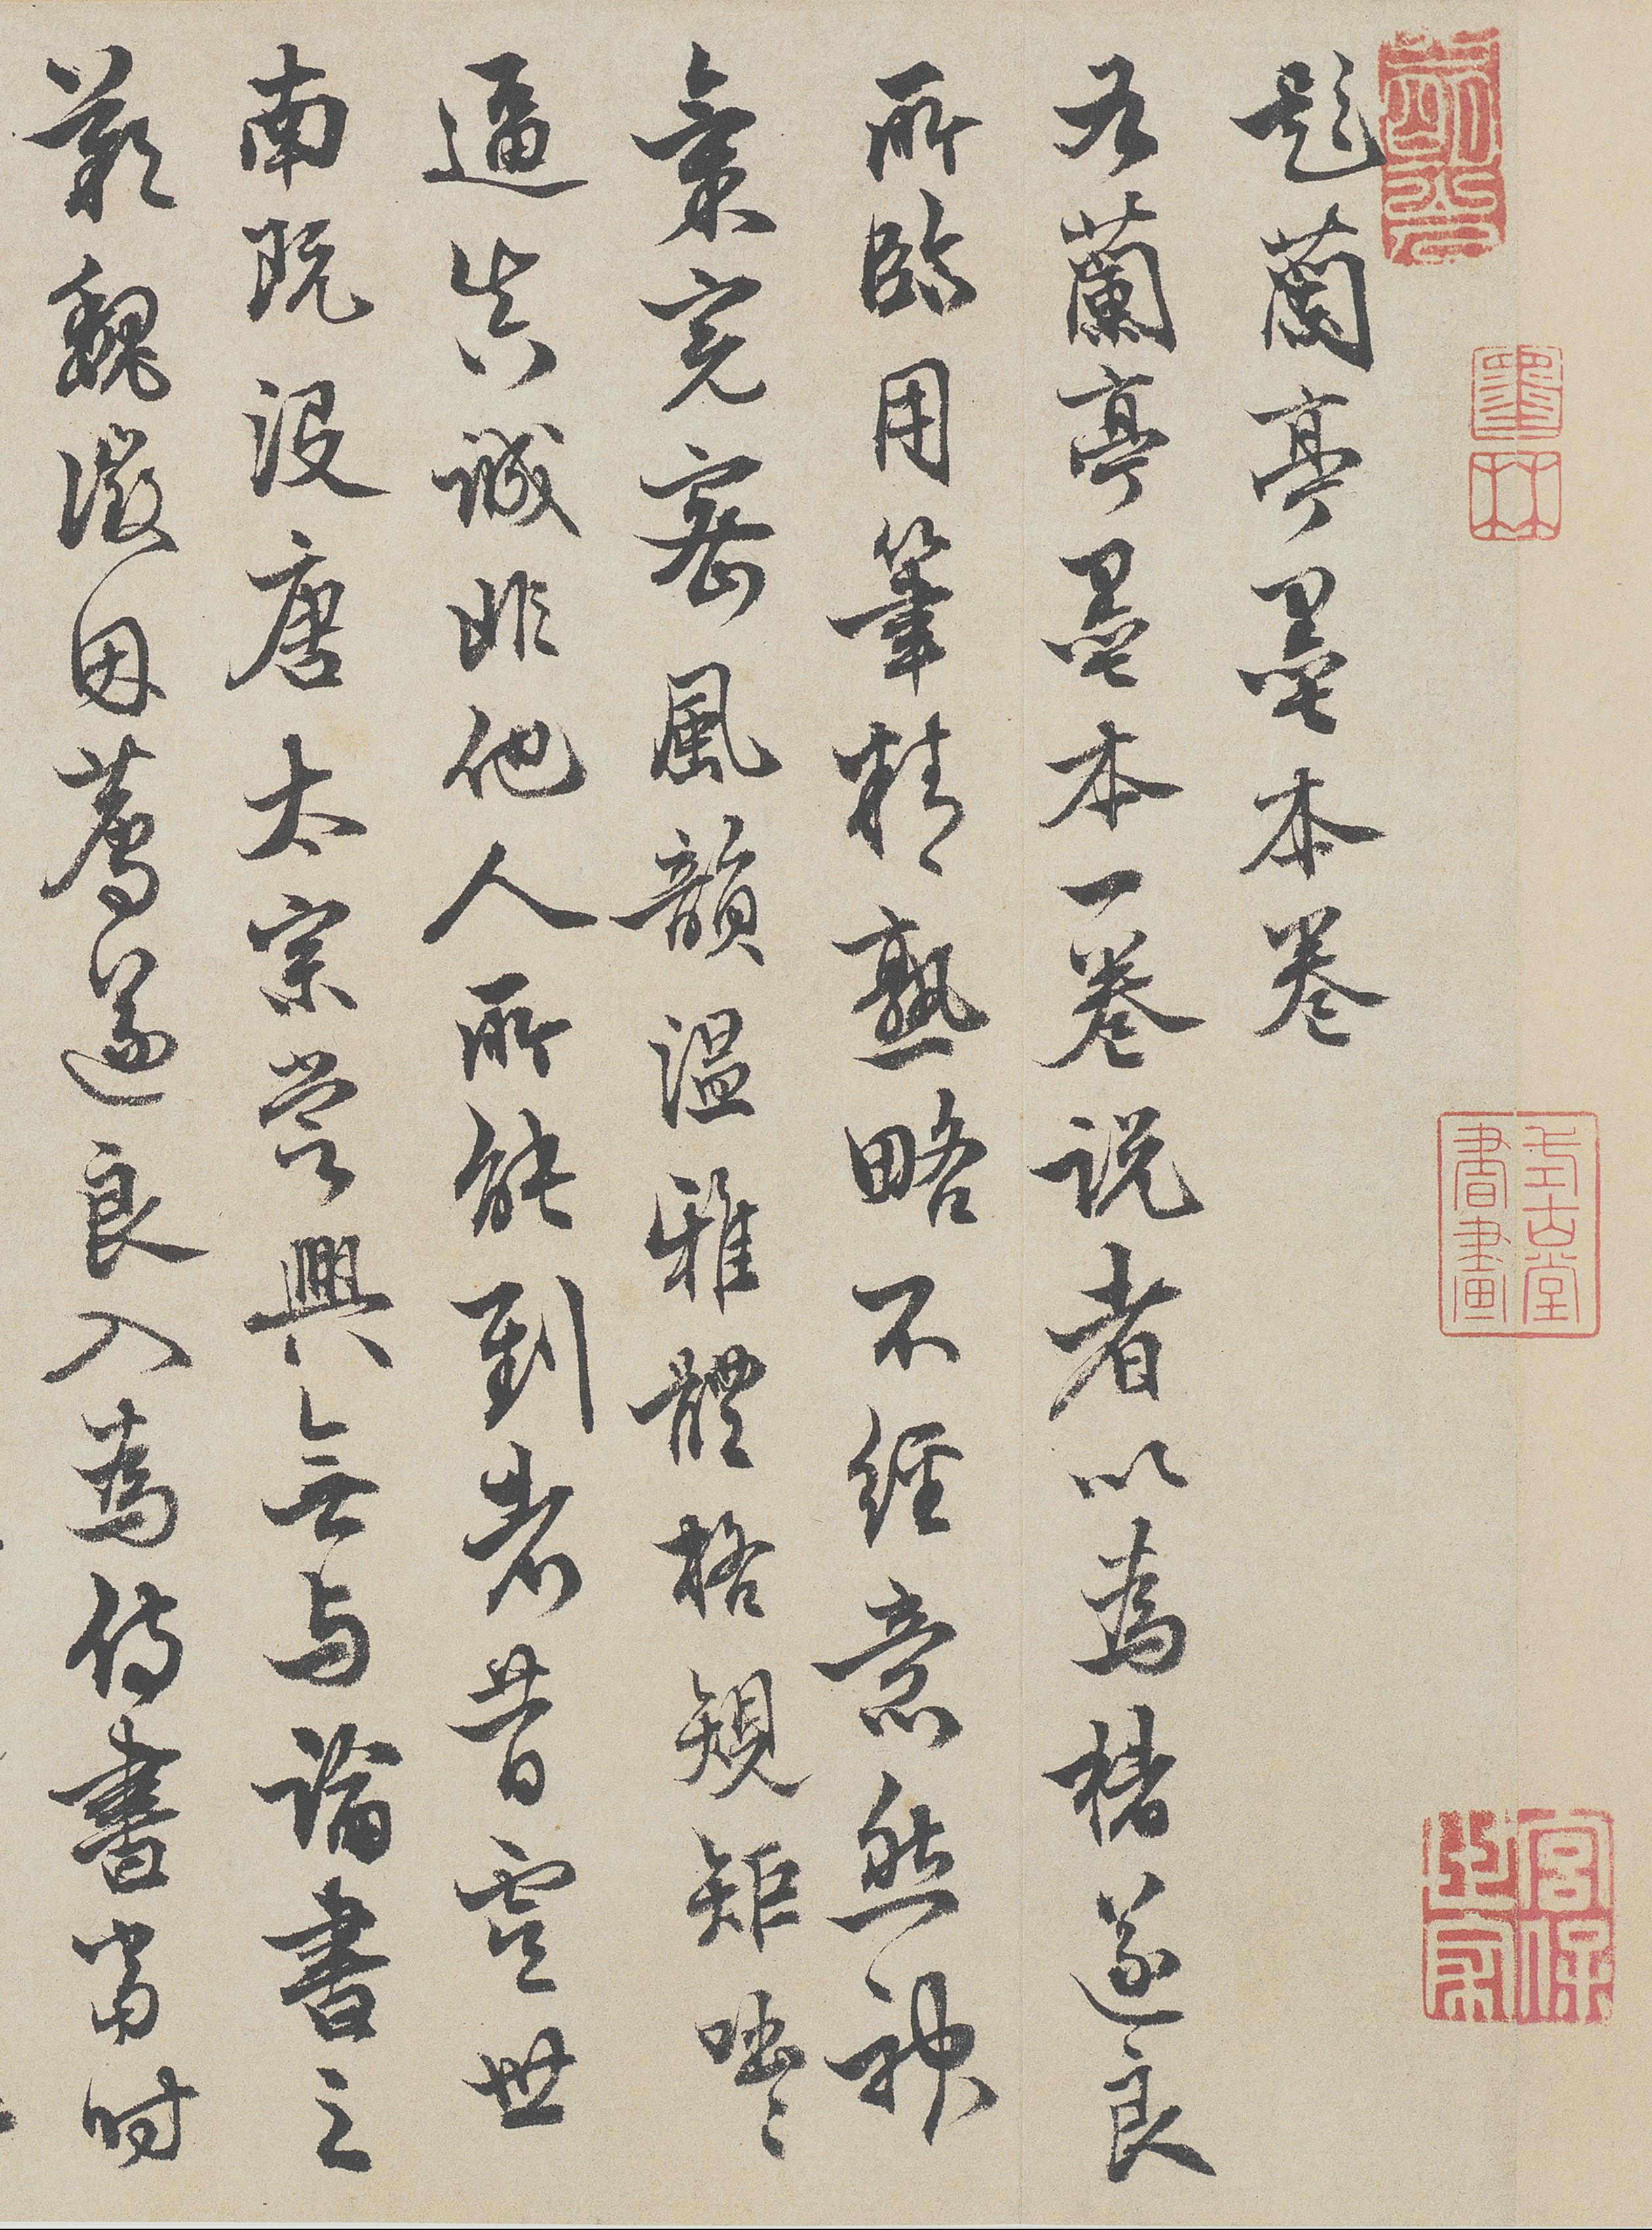 題蘭亭墨本卷
右蘭亭墨本一卷説者以為褚遂良
所臨用筆精熟略不經意然神
氣完密風韻温雅體格規矩咄〻
逼真誠非他人所能到者昔虞世
南既没唐太宗嘗興無与論書之
歎魏徵因薦遂良入為侍書當時
墨林
式古堂書畫
宮保世家